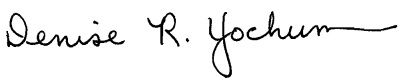 Denise R. Yochum